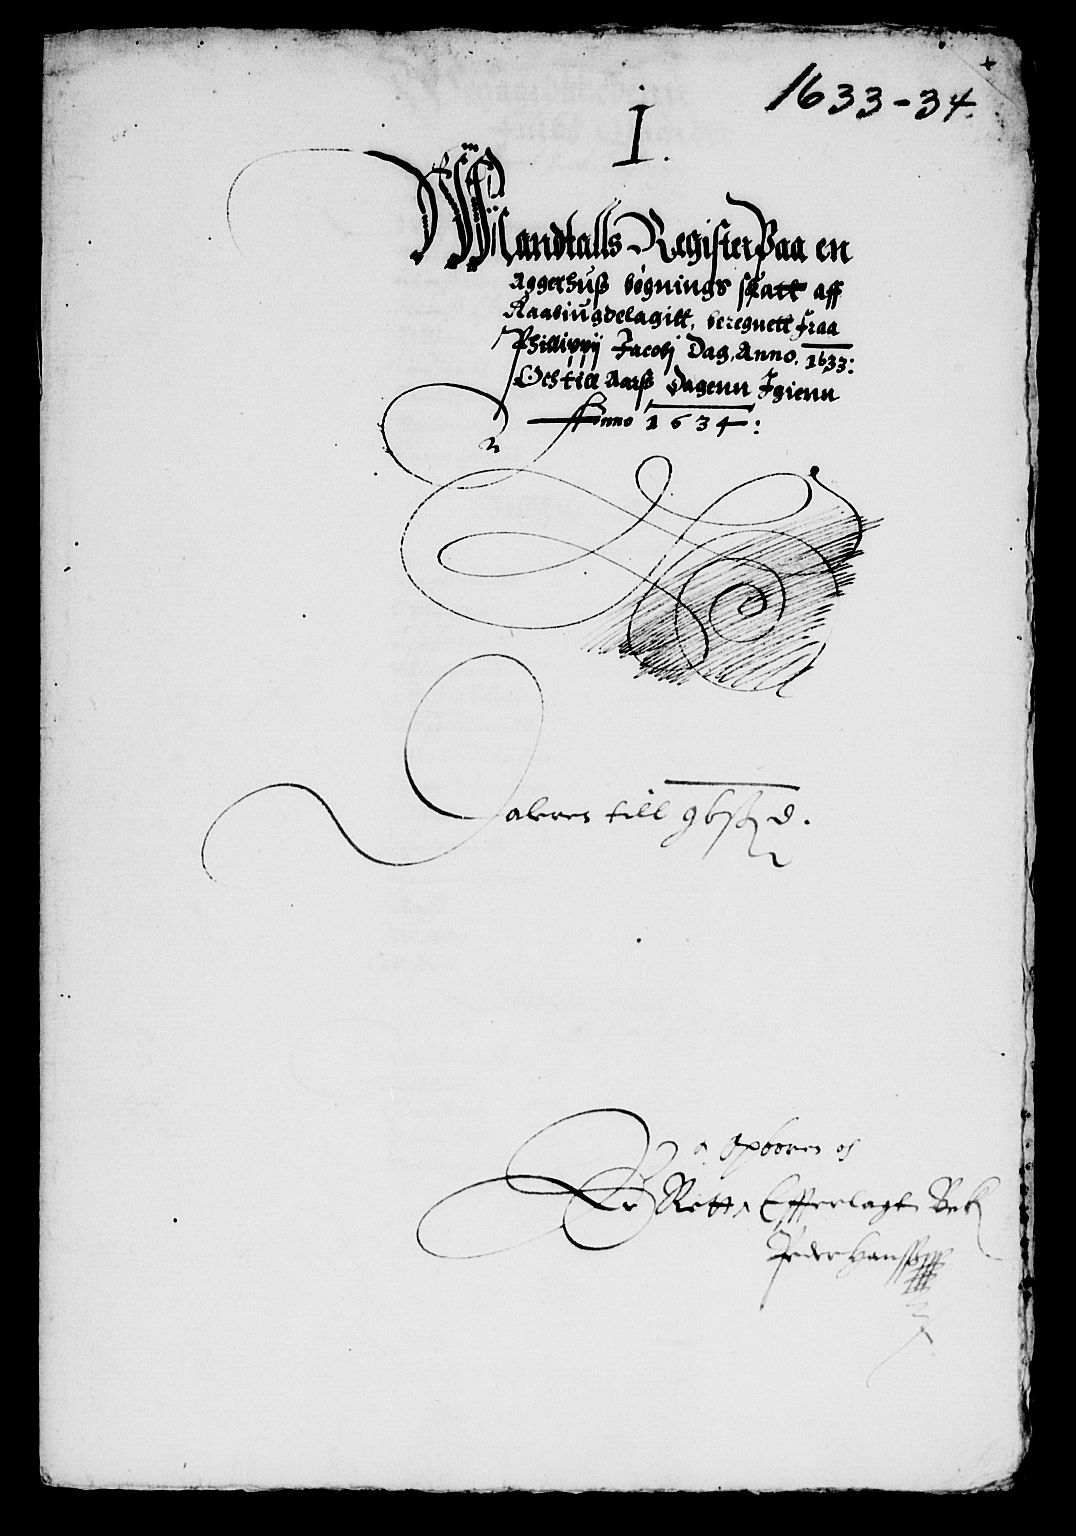 1633-34.
I.
Mandtalls Register Paa en
Aggerhuß bøgnings skatt aff
Raabiugdelagitt, beregnett fraa
Phillippij Jacobj Dag, Anno, 1633:
Och till Aarß Dagenn Jgienn
Anno 1634:
till
Rette Efferlagt
Peder Hanß